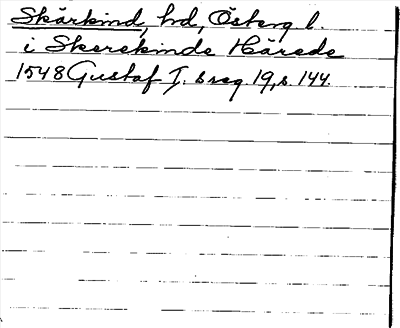 Skärkind, hd, Österg l.
i Skerekinde Härede
1548 Gustaf I. s reg. 19, s. 144.